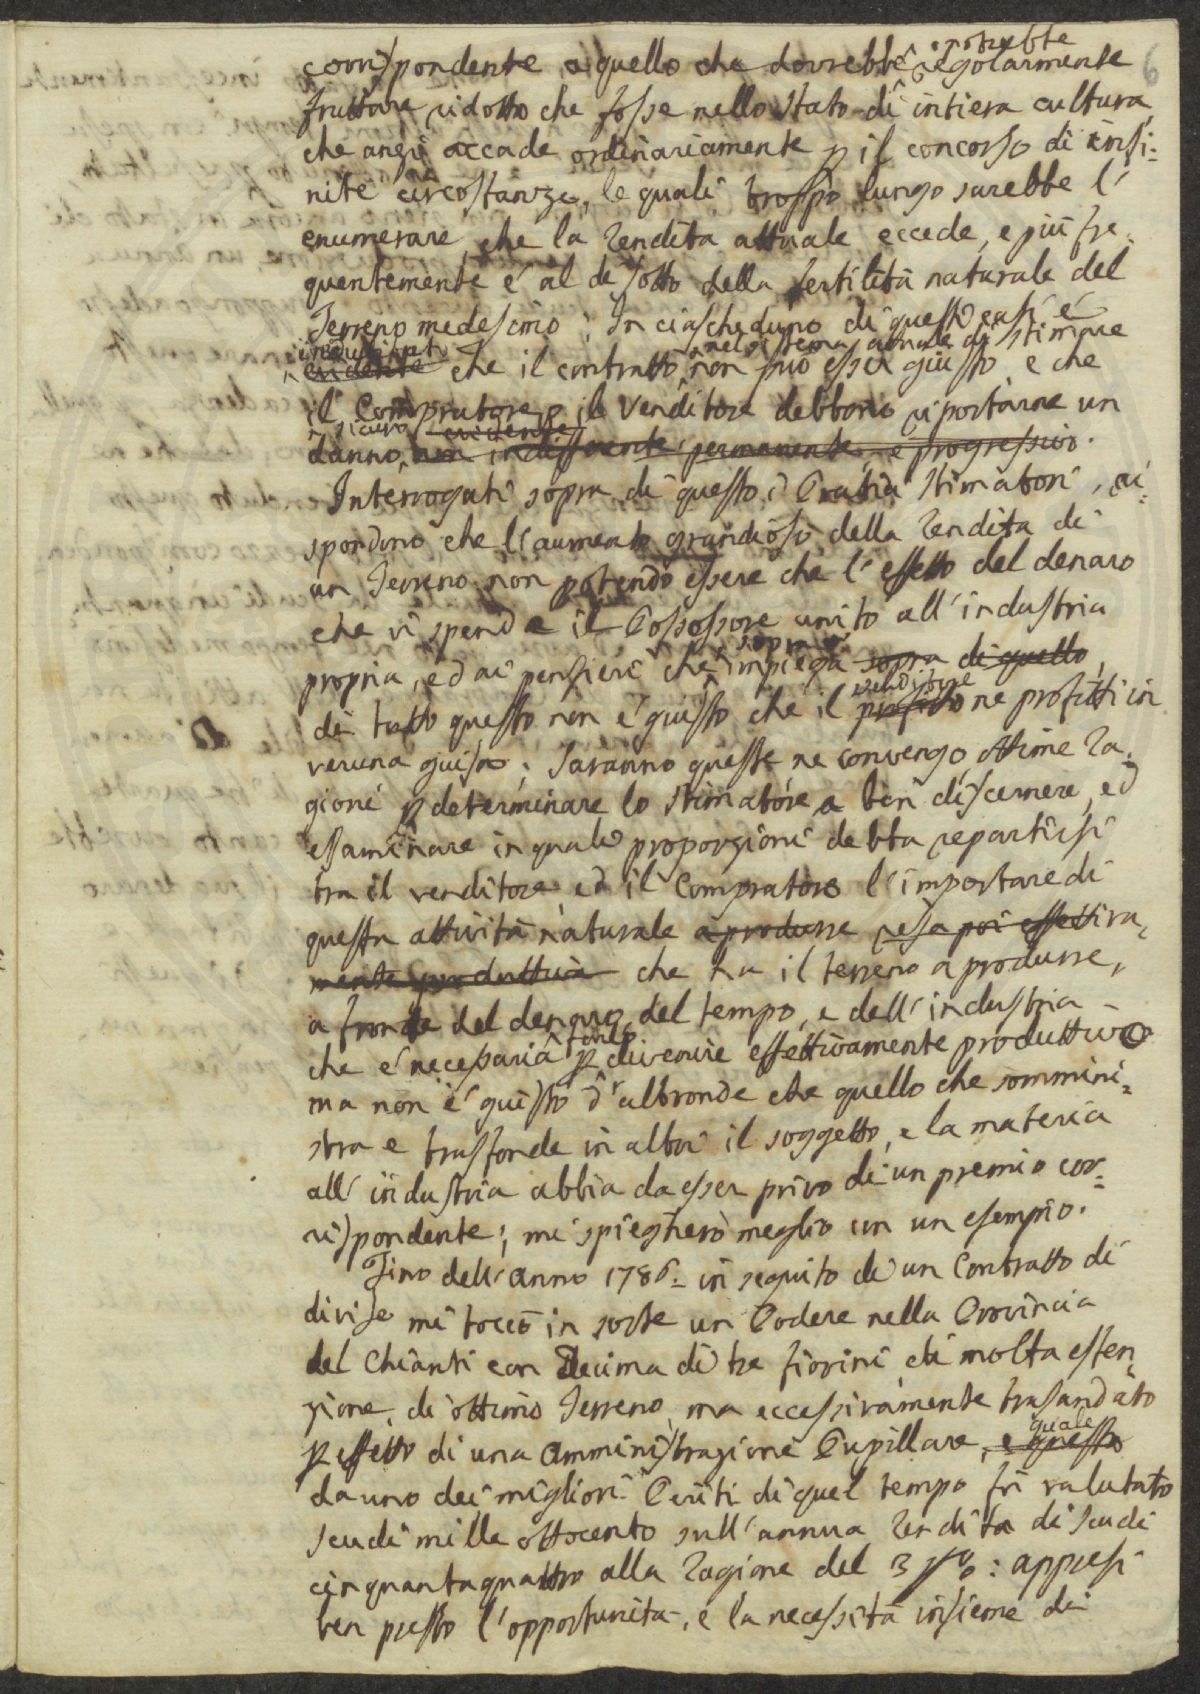 6
potrebbe
corrispondente a quello che dovrebbe regolarmente
fruttare ridotto che fosse nello stato di intiera cultura,
che anzi accade ordinariamente p il concorso di infi-
nite circostanze, le quali troppo lungo sarebbe l'
enumerare, che la rendita attuale eccede, e più fre
quentemente é al di sotto della fertilità naturale del
Terreno medesimo; In ciascheduno di questi casi é
indubitato nel sistema attuale di stimare
evidente che il contratto non può esser giusto, e che
il Compratore, o il Venditore debbono riportarne un
sicuro evidente
danno, non indifferente permanente, e progressivo.
Interrogati sopra di questo i Pratici Stimatori, ri-
spondono che l'aumento grandioso della rendita di
un Terreno non potendo essere che l'effetto del denaro
che vi spende il Possessore unito all'industria
sopra vi
propria, ed ai pensieri che impiega sopra di quello,
venditore
di tutto questo non é giusto che il profitto ne profitti in
veruna guisa; Saranno queste ne convengo ottime ra-
gioni p determinare lo stimatore a ben discernere, ed
esaminare in quale proporzioni debba repartirsi
tra il venditore, ed il Compratore l'importare di
questa attività naturale a produrre resa poi effettiva,
mente produttiva che ha il terreno a produrre,
a fronte del denaro, del tempo, e dell'industria
farlo
che é necessaria p divenire effettivamente produttivo
ma non é giusto d'altronde che quello che sommini-
stra e trasfonde in altri il soggetto, e la materia
all'industria abbia da esser privo di un premio cor-
rispondente; mi spiegherò meglio con un esempio.
Fino dell'anno 1786. in seguito di un Contratto di
divise mi toccò in sorte un Podere nella Provincia
del Chianti con Decima di tre fiorini di molta esten,
zione, di ottimo Terreno, ma eccessivamente trasandato
quale
p effetto di una Amministrazione Pupillare, e questo
da uno dei migliori Periti di quel tempo fu valutato
scudi mille ottocento sull'annua rendita di scudi
cinquantaquattro alla ragione del 3 p%: appresi
ben presto l'opportunità, e la necessità insieme di